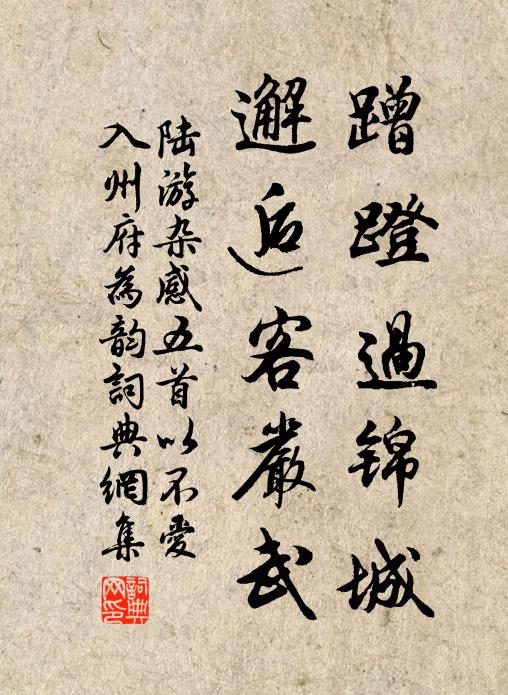 蹭蹬過錦城
邂逅客嚴武
陆游杂感五首以不愛
入州府為韵詞典網集
詞典网印